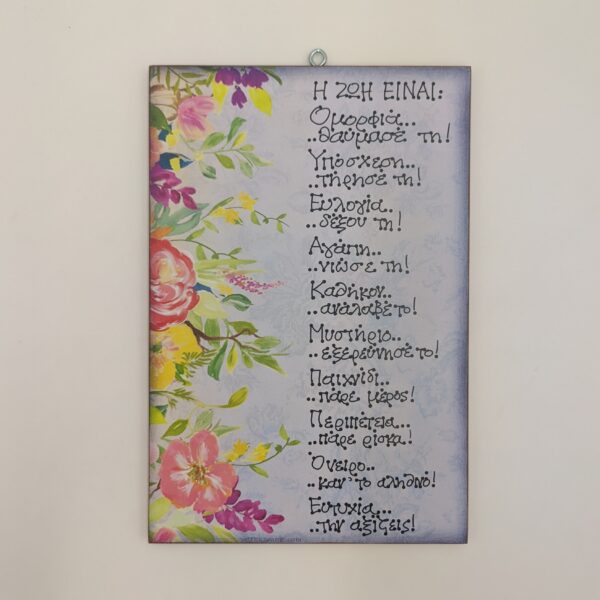 Η ΖΩΗ ΕΙΝΑΙ:
Ομορφιά...
..θαύμασέ τη!
Υπόσχεση..
..τήρησέ τη!
Ευλογία..
..δέξου τη!
Αγάπη..
..νιώσε τη!
Καθήκον..
..ανάλαβέ το!
Μυστήριο..
..εξερεύνησέ το!
Παιχνίδι..
..πάρε μέρος!
Περιπέτεια..
..πάρε ρίσκα!
Όνειρο..
..καν' το αληθινό!
Ευτυχία...
..την αξίζεις!